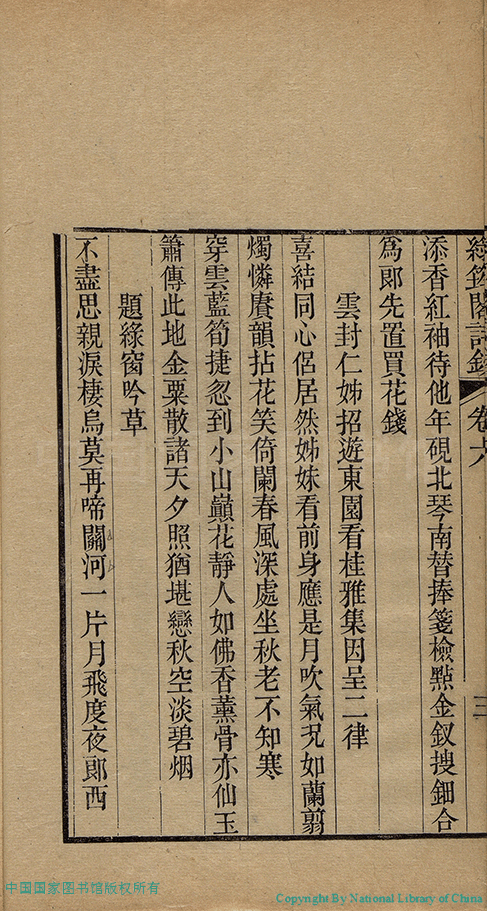 卷六
三
添香紅袖待他年硯北琴南替捧箋檢點金釵搜鈿合
爲郎先置買花錢
雲封仁姊招遊東園看桂雅集因呈二律
喜結同心侶居然姊妹看前身應是月吹氣況如蘭翦
燭憐賡韻拈花笑倚闌春風深處坐秋老不知寒
穿雲藍筍捷忽到小山巔花靜人如佛香薰骨亦仙玉
簫傳此地金粟散諸天夕照猶堪戀秋空淡碧烟
題綠窗吟草
不盡思親淚棲烏莫再啼關河一片月飛度夜郎西
中国国家图书馆版权所有
Copyright By National Library of China